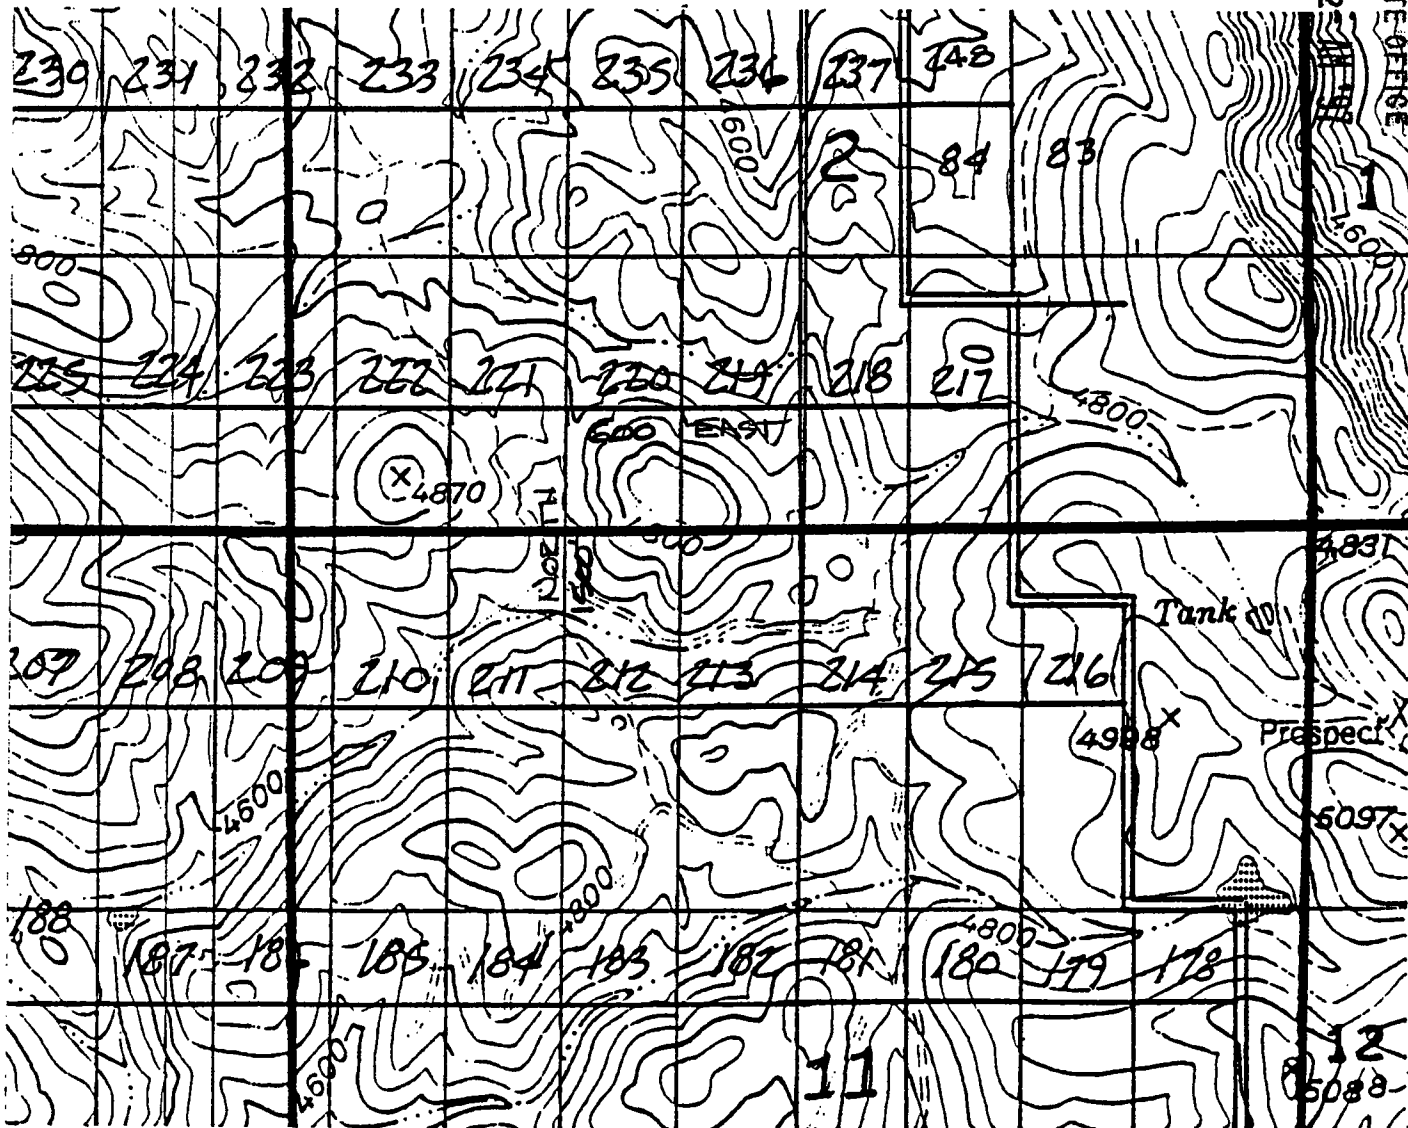 230 231 232 233 234 235 236 237 248
TE OFFICE
4600
2
84 83
1
4600
800
225 224 223 222 221 220 219 218 217
4800
600 EAST
4870
800
4831
1500
Tank
207 208 209 210 211 212 213 214 215 216
4998
Prospect
4600
5097
4800
188
4800
187 186 185 184 183 182 181 180 179 178
4600
11
12
5088